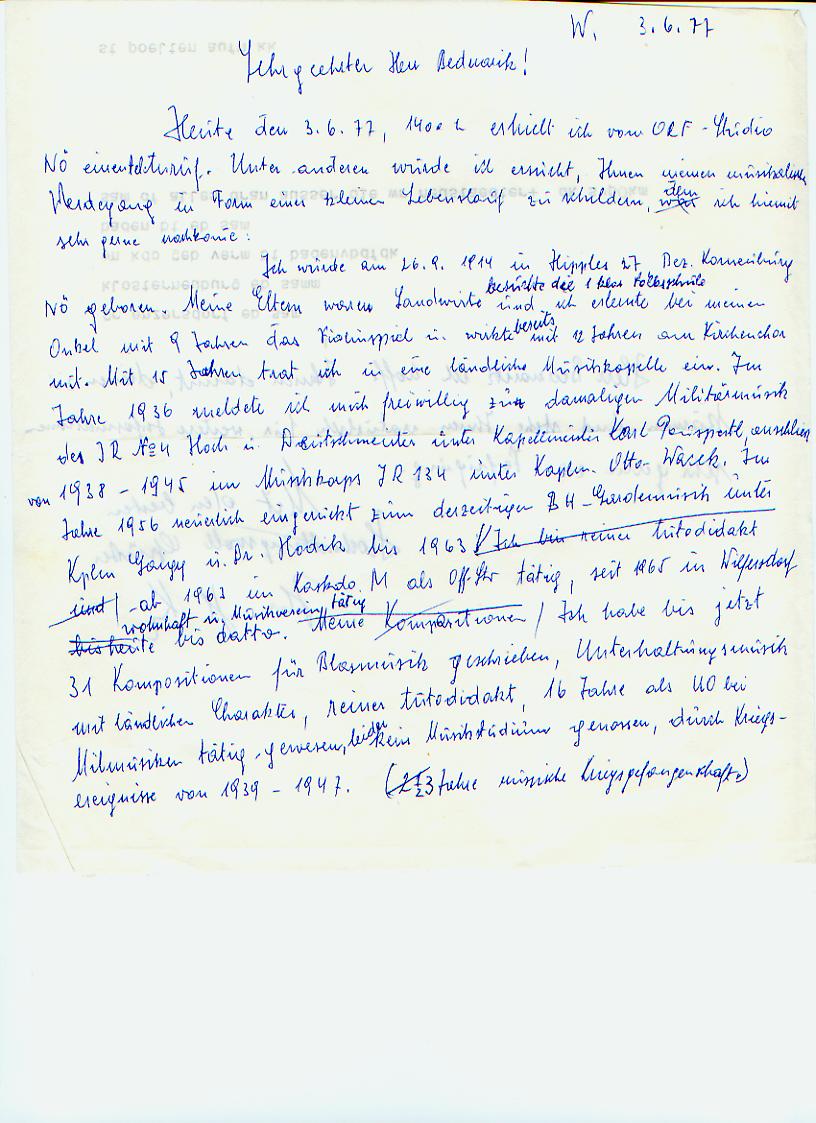 W, 3.6.77
Sehr geehrter Herr Bednarik!
Heute den 3.6.77, 1400 h erhielt ich vom ORF-Studio
NÖ einen Anruf. Unter anderen wurde ich ersucht, Ihnen meinen musikalischen
Werdegang in Form einer kleinen Lebenslauf zu schildern, dem ich hiemit
sehr gerne nachkomme:
Ich wurde am 26.9.1914 in Hipples 27 Bez. Korneuburg
besuchte die 1 klas Volksschule
NÖ geboren. Meine Eltern waren Landwirte und ich erlernte bei meinen
Onkel mit 9 Jahren das Violinspiel u. wirkte bereits mit 12 Jahren am Kirchenchor
mit. Mit 15 Jahren trat ich in eine ländliche Musikkapelle ein. Im
Jahre 1936 meldete ich mich freiwillig zur damaligen Militärmusik
des IR No 4 Hoch u. Deutschmeister unter Kapellmeister Karl
von 1938 - 1945 im Musikkorps IR 134 unter Kaplm. Otto Wacek. Im
Jahre 1956 neuerlich eingerückt zum derzeitigen BH-Gardemusik unter
Kplm Gangg u. Dr. Hodik bis 1963 / Ich bin reiner tutodidakt
und / - ab 1963 im Kaskdo M als Off.Str tätig, seit 1965 in Wilfersdorf
wohnhaft u. Musikverein tätig
bis heute bis datto. Meine Kompositionen / Ich habe bis jetzt
31 Kompositionen für Blasmusik geschrieben, Unterhaltungsmusik
mit ländlichen Charakter, reiner tutodidakt, 16 Jahre als UO bei
Milmusiken tätig gewesen, leider kein Musikstudium genossen, durch Kriegs-
ereignisse von 1939 - 1947. (2 1/2 3 Jahre russische Kriegsgefangenschaft.)